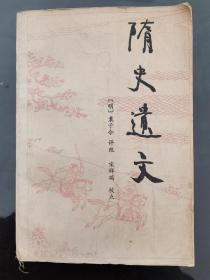 隋史遗文
〔明〕袁于令 评改 宋祥瑞 校点